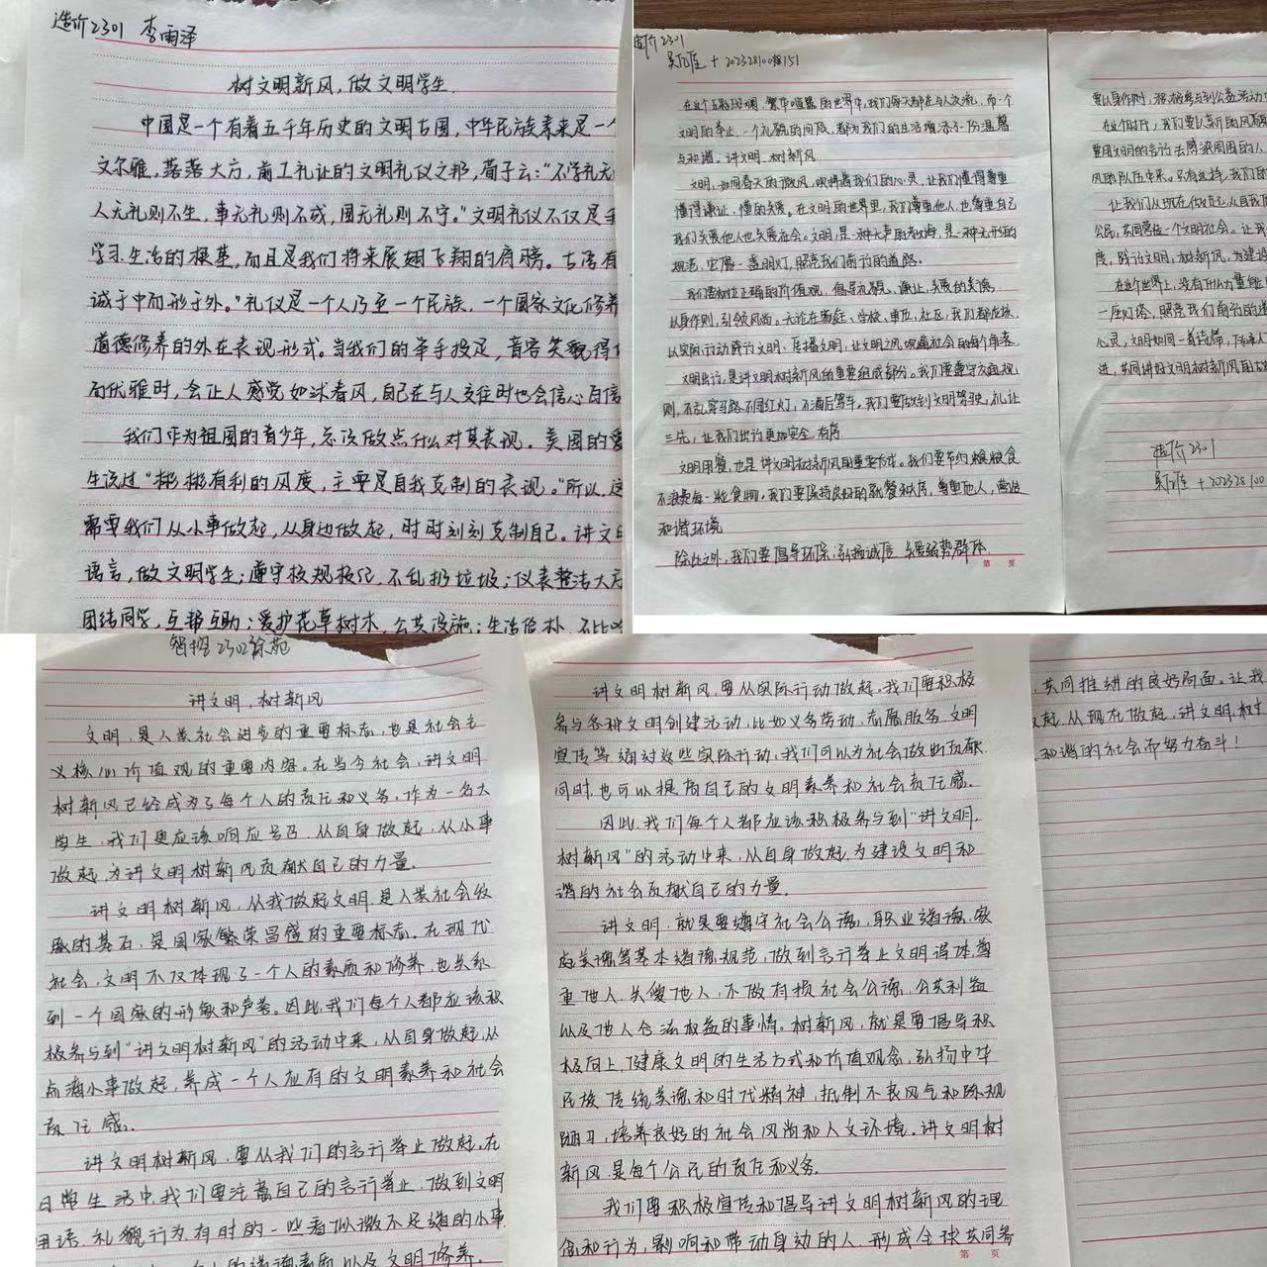 造价2301 李雨泽
树文明新风,做文明学生.
中国是一个有着五千年历史的文明古国,中华民族素来是一个
文尔雅,落落大方,谦工礼让的文明礼仪之邦,荀子云:"不学礼无
人无礼则不生,事无礼则不成,国无礼则不宁."文明礼仪不仅是
学习.生活的根基,而且是我们将来展翅飞翔的肩膀。古语有
诚于中而形于外."礼仪是一个人乃至一个民族、一个国家文化修养
道德修养的外在表现形式。当我们的举手投足,音容笑貌得体
而优雅时,会让人感觉如沐春风,自己在与人交往时也会信心自信
我们作为祖国的青少年,总该做点什么对其表现。美国的爱
生说过"彬彬有利的风度,主要是自我克制的表现。"所以,这
需要我们从小事做起,从身边做起,时时刻刻克制自己。讲文明
语言,做文明学生;遵守校规校纪,不乱扔垃圾;仪表整洁大方
团结同学,互帮互助;爱护花草树木,公共设施;生活俭朴,不比
造价2301
在这个五彩斑斓,繁华喧嚣的世界中,我们每天都在与人交流,而一个
文明的举止,一个礼貌的问候,都为我们的生活增添了一份温馨
与和谐。讲文明、树新风
文明,如同春天的微风,吹拂着我们的心灵,让我们懂得尊重
懂得谦让,懂的关爱。在文明的世界里,我们尊重他人,也尊重自己
我们关爱他人也关爱社会。文明,是一种无声的,是一种无形的
规范,它像一盏明灯,照亮我们前行的道路.
我们要树立正确的价值观,倡导礼貌、谦让、关爱的美德
以身作则,引领风尚。无论在家庭、学校、单位、社区,我们都应该
以实际行动践行文明、传播文明,让文明之风吹遍社会的每个角落
文明出行,是讲文明树新风的重要组成部分。我们要遵守交通规
则,不乱穿马路不闯红灯,不酒后驾车,我们要做到文明驾驶,礼让
三先,让我们出行更加安全、有序
文明用餐,也是讲文明树新风的重要体现。我们要节约粮食
不浪费每一粒食物,我们要保持良好的就餐秩序,尊重他人,营造
和谐环境
除此之外,我们要倡导环保,弘扬诚信,关爱弱势群体
第 页
要以身作则,积极参与到公益活动
在这个时代,我们要以新的风貌
重用文明的言行去感染周围的人
风的队伍中来。只有这样,我们的
让我们从现在做起,从自我
公民,共同营造一个文明社会。让我
度,践行文明,树新风,为建设
在这个世界上,没有什么力量能
一座灯塔,照亮我们前行的道
造价2301
智控2302徐苑
讲文明,树新风
文明,是人类社会进步的重要标志,也是社会主
义核心价值观的重要内容。在当今社会,讲文明
树新风已经成为了每个人的责任和义务,作为一名大
学生,我们更应该响应号召,从自身做起,从小事
做起,为讲文明树新风贡献自己的力量。
讲文明树新风,从我做起文明,是人类社会发
展的基石,是国家繁荣昌盛的重要标志。在现代
社会,文明不仅体现了一个人的素质和修养,也关系
到一个国家的形象和声誉。因此,我们每个人都应该积
极参与到"讲文明树新风"的活动中来,从自身做起,从
点滴小事做起,养成一个人应有的文明素养和社会
责任感。
讲文明树新风,要从我们的言行举止做起,在
日常生活中,我们要注意自己的言行举止,做到文明
用语,礼貌行为,有时的一些看似微不足道的小事
的道德素质以及文明修养。
讲文明树新风,要从实际行动做起,我们要积极
参与各种文明创建活动,比如义务劳动,志愿服务,文明
宣传等,通过这些实际行动,我们可以为社会做出贡献
同时,也可以提高自己的文明素养和社会责任感。
因此,我们每个人都应该积极参与到"讲文明,
树新风"的活动中来,从自身做起,为建设文明和
谐的社会贡献自己的力量。
讲文明,就是要遵守社会公德,职业道德,家
庭美德等基本道德规范,做到言行举止文明得体,尊
重他人,关爱他人,不做有损社会公德,公共利益
以及他人合法权益的事情。树新风,就是要倡导积
极向上,健康文明的生活方式和价值观念,弘扬中华
民族传统美德和时代精神,抵制不良风气和陈规
陋习,培养良好的社会风尚和人文环境。讲文明树
新风,是每个公民的责任和义务。
我们要积极宣传和倡导讲文明树新风的理
念和行为,影响和带动身边的人,形成全球共同参
第 页
,共同推进的良好局面。让我
做起,从现在做起,讲文明,树
和谐的社会而努力奋斗!